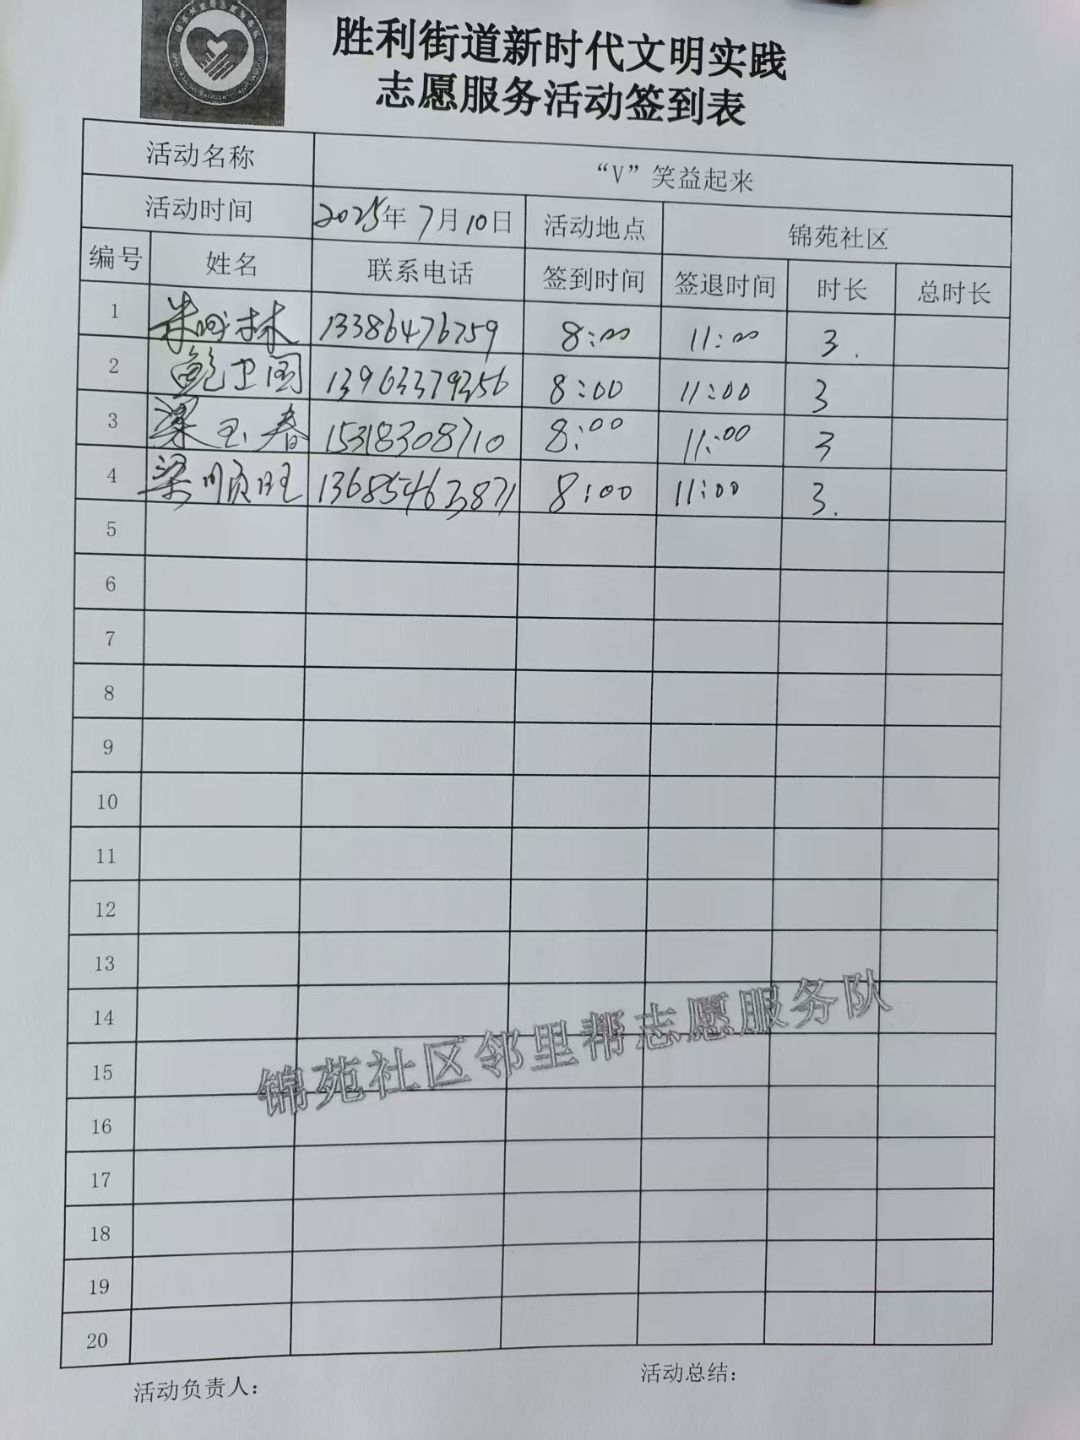 胜利街道新时代文明实践
志愿服务活动签到表
活动名称 “V”笑益起来
活动时间 2025年 7月10日 活动地点 锦苑社区
编号 姓名 联系电话 签到时间 签退时间 时长 总时长
1 13386476759 8:00 11:00 3.
2 鲍卫国 13963379356 8:00 11:00 3
3 梁玉春 15318308710 8:00 11:00 3
4 梁顺旺 13685463871 8:00 11:00 3.
5
6
7
8
9
10
11
12
13
14
锦苑社区邻里帮志愿服务队
15
16
17
18
19
20
活动负责人：
活动总结：